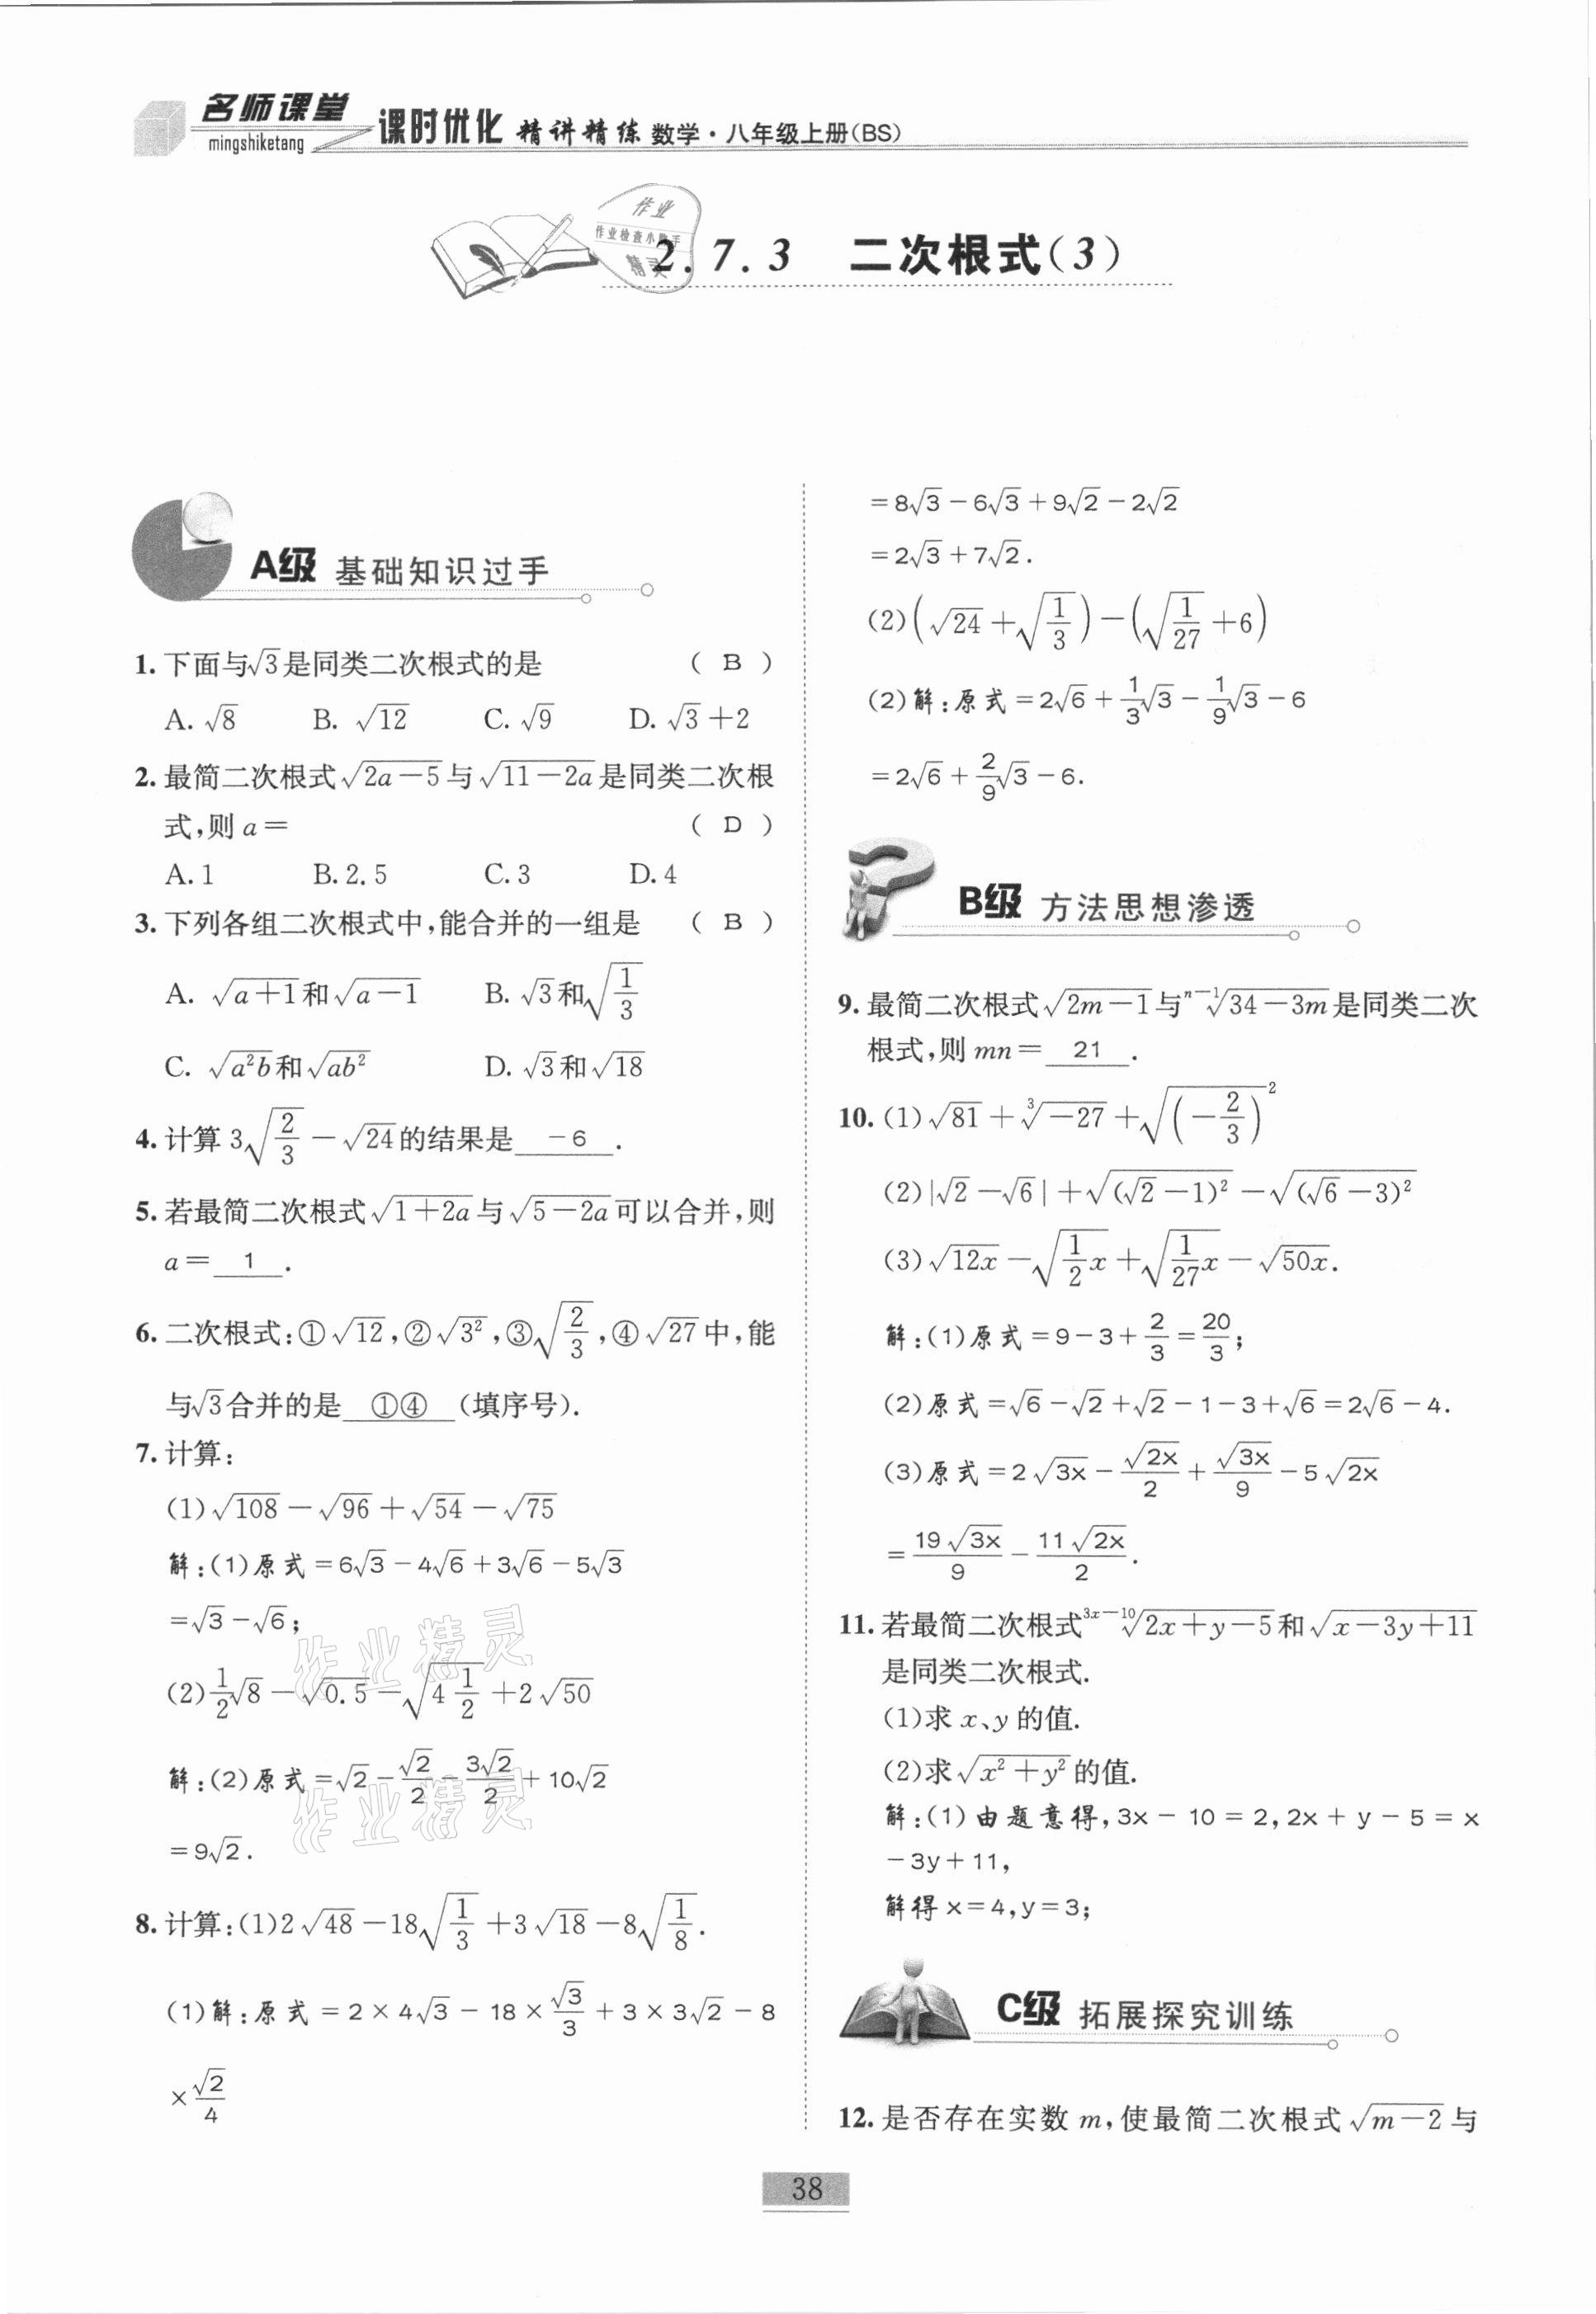 名师课堂
mingshiketang
课时优化 精讲精练 数学·八年级上册(BS)
作业
作业检查小助手
精灵
2.7.3 二次根式(3)
A级 基础知识过手
1. 下面与√3是同类二次根式的是 ( B )
A. √8 B. √12 C. √9 D. √3+2
2. 最简二次根式√(2a-5)与√(11-2a)是同类二次根
式,则 a= ( D )
A. 1 B. 2.5 C. 3 D. 4
3. 下列各组二次根式中,能合并的一组是 ( B )
A. √(a+1)和√(a-1) B. √3和√(1/3)
C. √(a²b)和√(ab²) D. √3和√18
4. 计算 3√(2/3)-√24的结果是 -6 .
5. 若最简二次根式√(1+2a)与√(5-2a)可以合并,则
a= 1 .
6. 二次根式:①√12,②√(3²),③√(2/3),④√27中,能
与√3合并的是 ①④ (填序号).
7. 计算:
(1)√108-√96+√54-√75
解:(1)原式=6√3-4√6+3√6-5√3
=√3-√6;
(2)1/2√8-√0.5-√(4 1/2)+2√50
解:(2)原式=√2-√2/2-3√2/2+10√2
=9√2.
作业精灵
作业精灵
8. 计算:(1)2√48-18√(1/3)+3√18-8√(1/8).
(1)解:原式=2×4√3-18×√3/3+3×3√2-8
×√2/4
=8√3-6√3+9√2-2√2
=2√3+7√2.
(2)(√24+√(1/3))-(√(1/27)+6)
(2)解:原式=2√6+1/3√3-1/9√3-6
=2√6+2/9√3-6.
B级 方法思想渗透
9. 最简二次根式√(2m-1)与ⁿ⁻¹√(34-3m)是同类二次
根式,则 mn= 21 .
10. (1)√81+³√(-27)+√((-2/3)²)
(2)|√2-√6|+√((√2-1)²)-√((√6-3)²)
(3)√(12x)-√(1/2 x)+√(1/27 x)-√(50x).
解:(1)原式=9-3+2/3=20/3;
(2)原式=√6-√2+√2-1-3+√6=2√6-4.
(3)原式=2√(3x)-√(2x)/2+√(3x)/9-5√(2x)
=19√(3x)/9-11√(2x)/2.
11. 若最简二次根式³ˣ⁻¹⁰√(2x+y-5)和√(x-3y+11)
是同类二次根式.
(1)求 x、y 的值.
(2)求√(x²+y²)的值.
解:(1)由题意得,3x-10=2,2x+y-5=x
-3y+11,
解得 x=4,y=3;
C级 拓展探究训练
12. 是否存在实数 m,使最简二次根式√(m-2)与
38